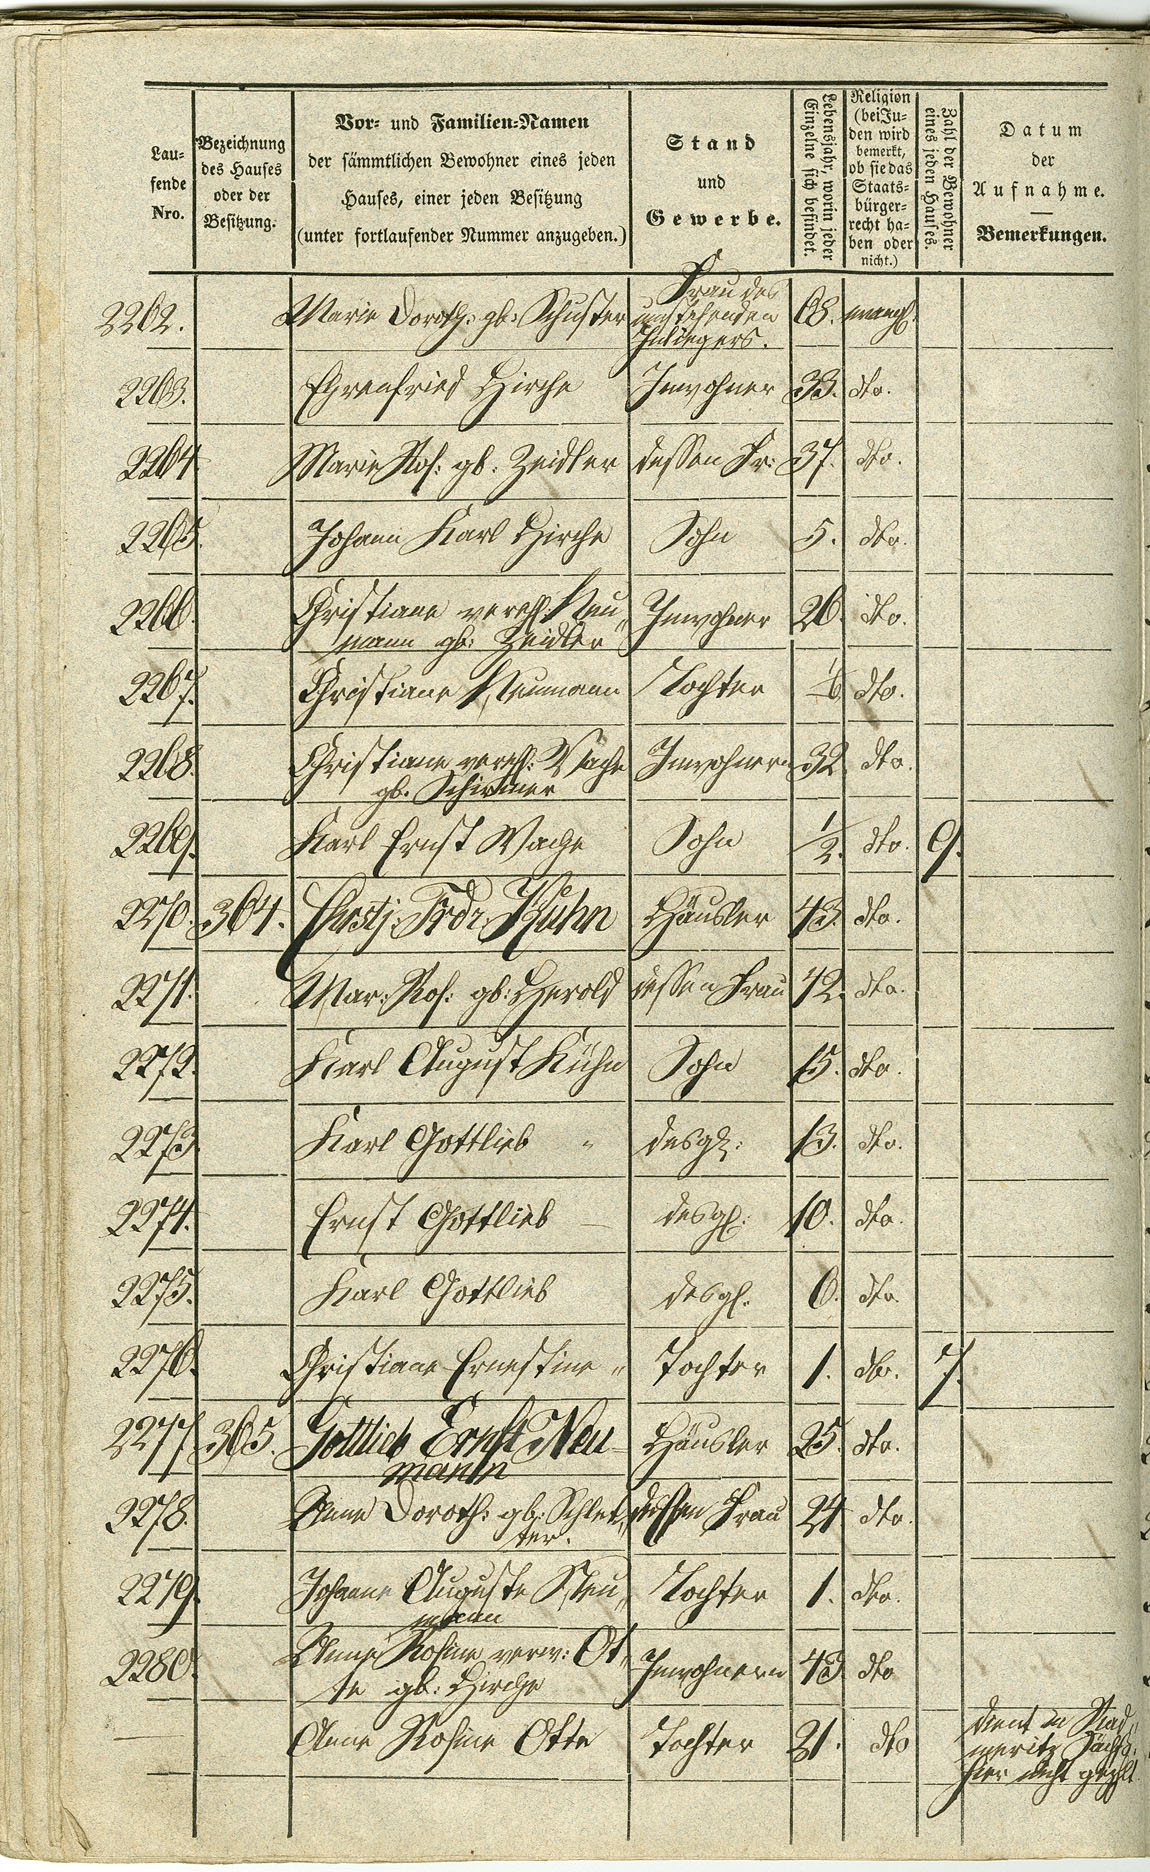 Lau-
fende
Nro.
Bezeichnung
des Hauses
oder der
Besitzung.
Vor- und Familien-Namen
der sämmtlichen Bewohner eines jeden
Hauses, einer jeden Besitzung
(unter fortlaufender Nummer anzugeben.)
Stand
und
Gewerbe.
Lebensjahr, worin jeder
Einzelne sich befindet.
Religion
(bei Ju-
den wird
bemerkt,
ob sie das
Staats-
bürger-
recht ha-
ben oder
nicht.)
Zahl der Bewohner
eines jeden Hauses.
Datum
der
Aufnahme.
Bemerkungen.
Frau des
2262. Marie Doroth: gb: Schuster umstehenden 68. evangl.
Inliegers.
2263. Ehrenfried Hirche Inwohner 33. dto.
2264 Marie Ros: gb. Zeidler dessen Fr: 37. dto.
2265. Johann Karl Hirche Sohn 5. dto.
2266. Christiane verehl: Neu„ Inwohner 26. dto.
mann gb: Zeidler
2267. Christiane Neumann Tochter dto.
2268. Christiane verehl: Wache Inwohnern 32. dto.
gb. Schirmer
2269. Karl Ernst Wache Sohn 1/2. dto. 9.
2270. 364. Christj: Frdr Kühn Häusler 43. dto.
2271. Mar: Ros: gb: Herold dessen Frau 42. dto.
2272. Karl August Kühn Sohn 15. dto.
2273. Karl Gottlieb „ desgl: 13. dto.
2274. Ernst Gottlieb — desgl: 10. dto.
2275. Karl Gottlieb desgl. 6. dto.
2276. Christiane Ernestine „ Tochter 1. dto. 7.
2277. 365. Gottlieb Ernst Neu- Häusler 25. dto.
mann
2278. Anne Doroth: gb: Schlet„ dessen Frau 24. dto.
ter.
2279. Johanne Auguste Neu„ Tochter 1. dto.
mann
2280. Anne Rosine verw: Ot„ Inwohnern 43. dto
te gb: Hirche
dient in Rad„
— Anne Rosine Otte Tochter 21. dto meritz
hier nicht gezält